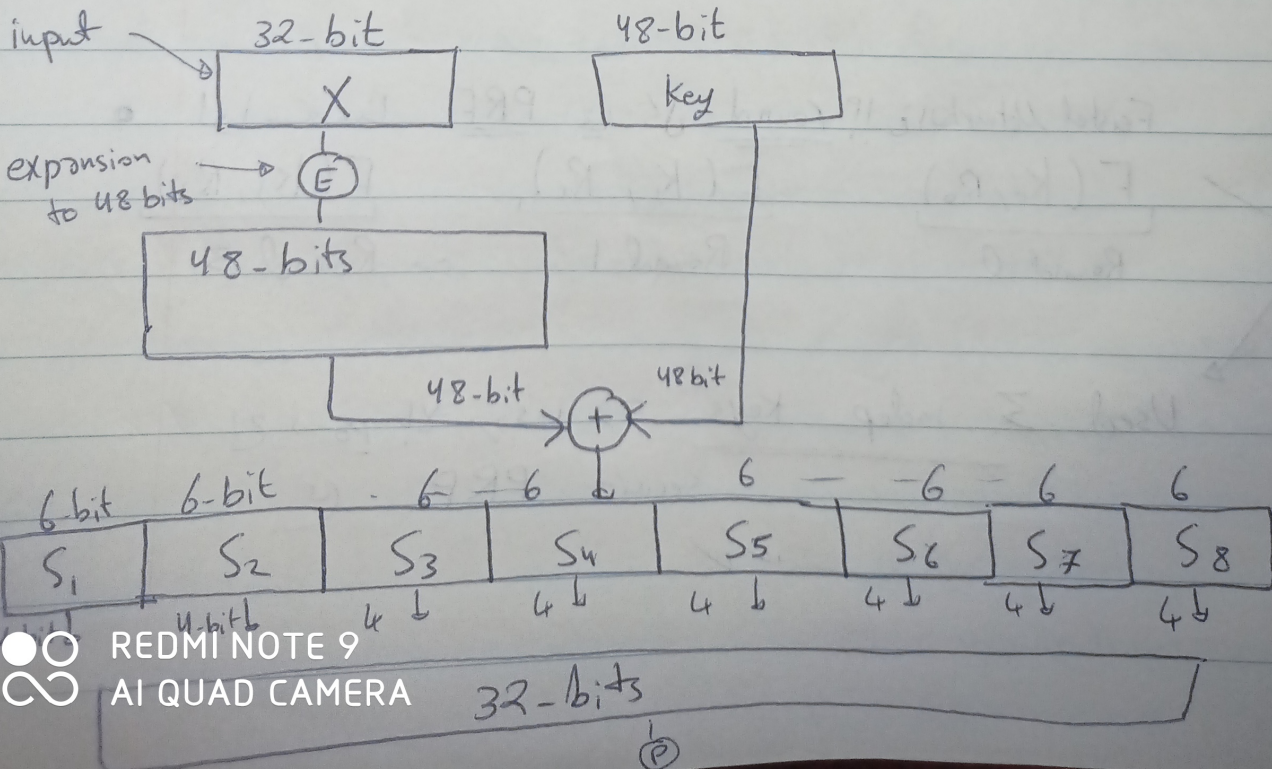 input
32-bit
48-bit
X
Key
expansion
to 48 bits
E
48-bits
48-bit
48 bit
+
6-bit 6-bit - 6 - 6 6 - - 6 - 6 6
S1 S2 S3 S4 S5 S6 S7 S8
4-bit 4 4 4 4 4 4
REDMI NOTE 9
AI QUAD CAMERA
32-bits
P